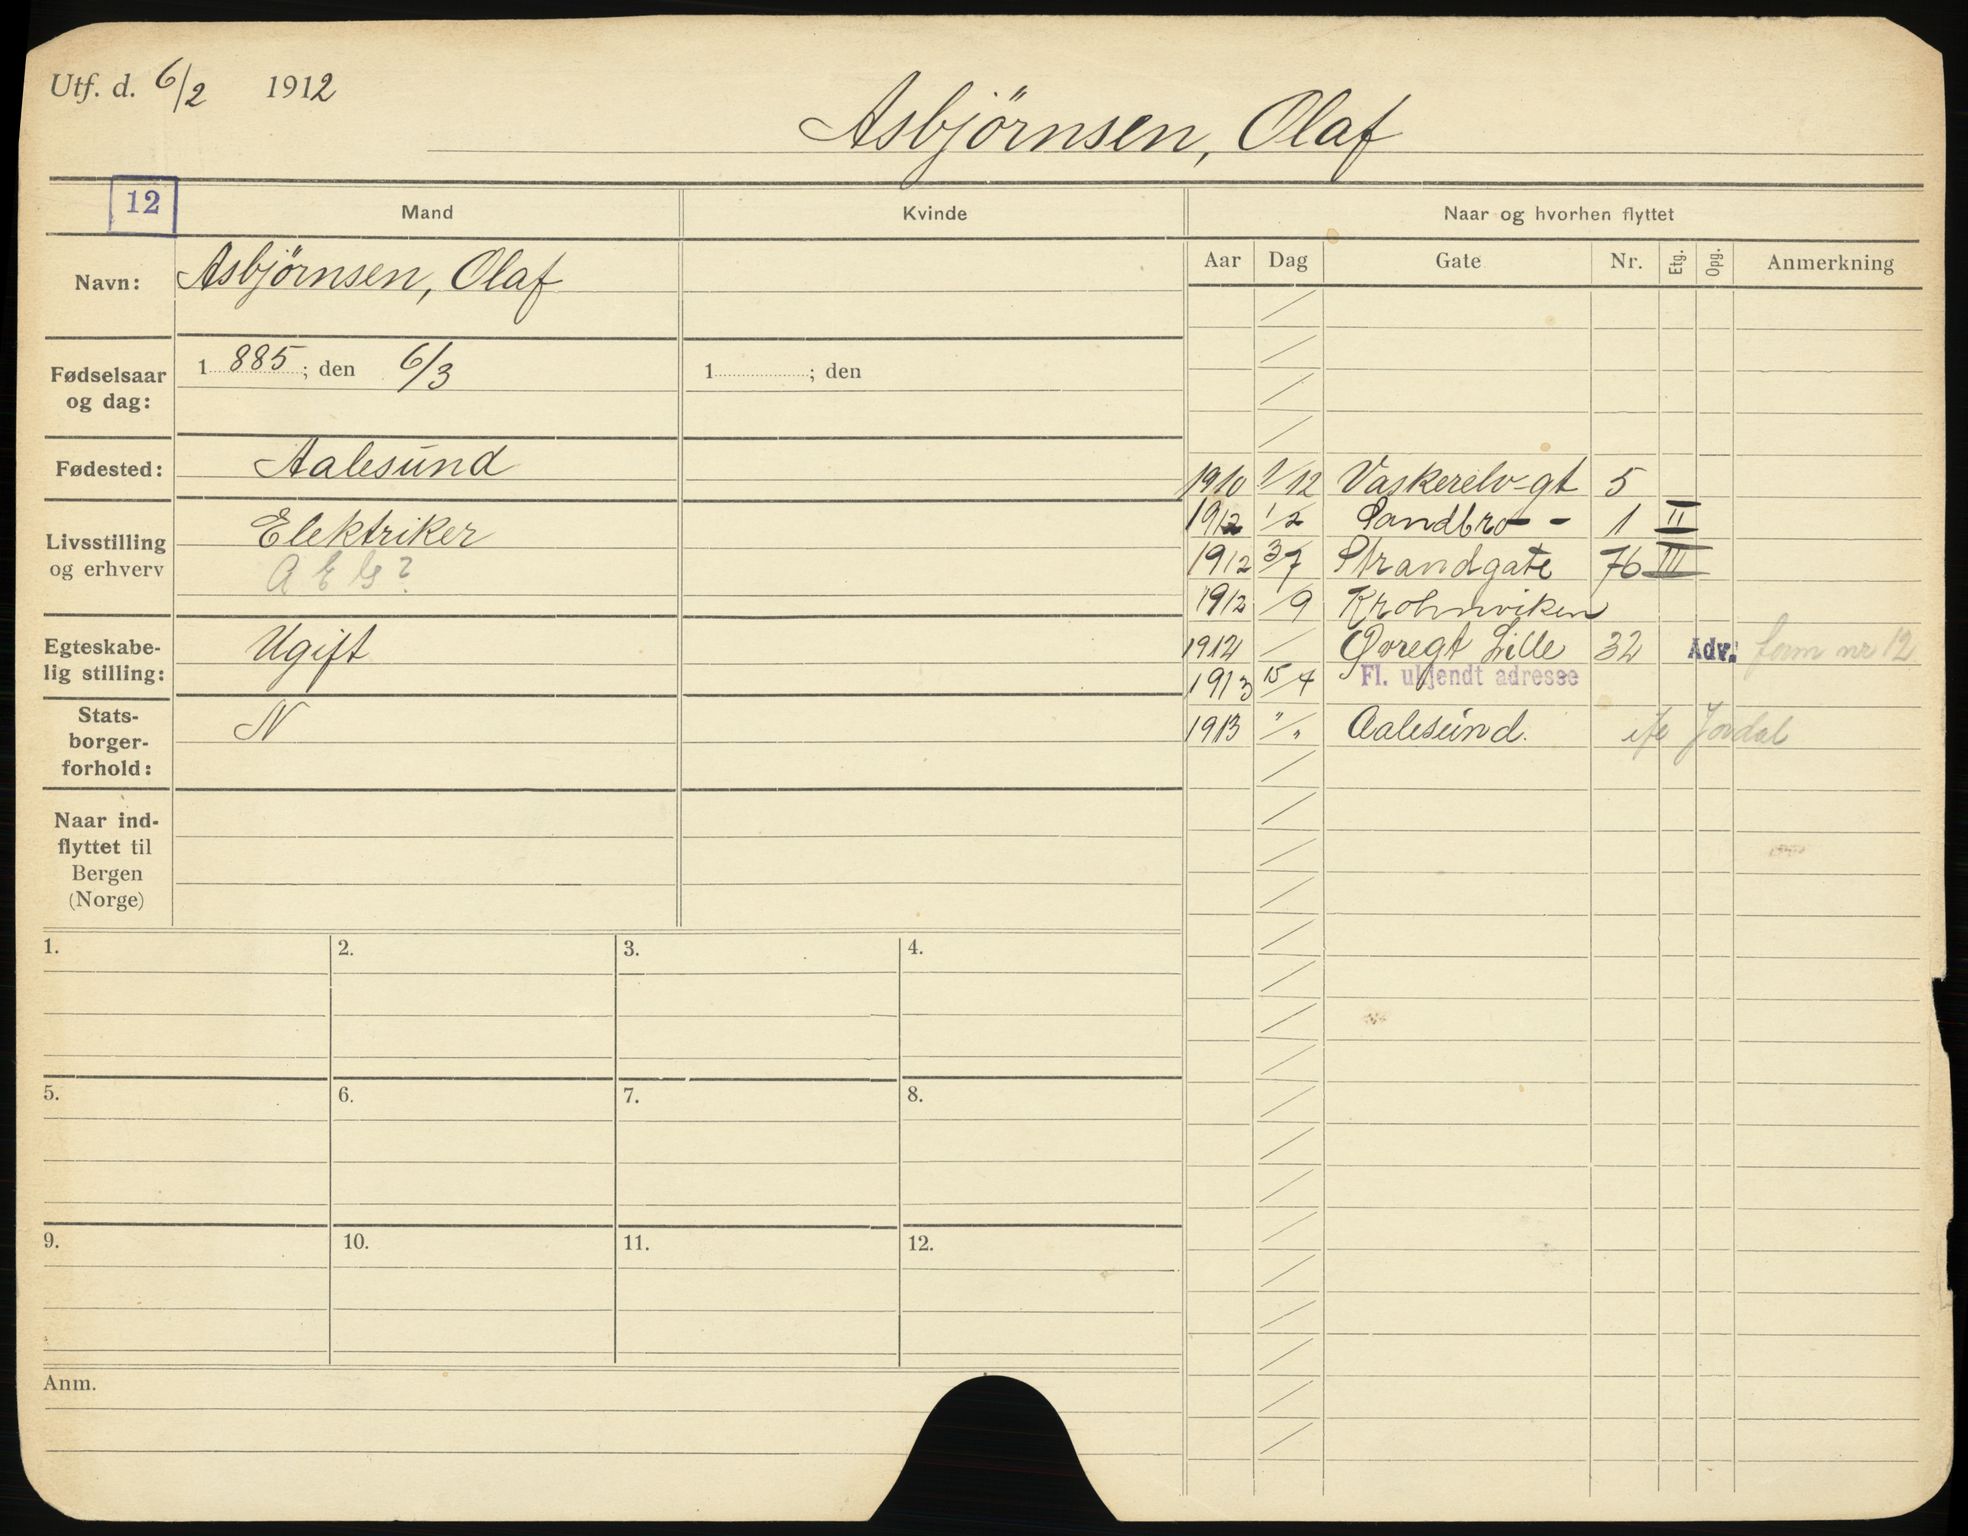 Utf. d. 6/2 1912
Asbjörnsen, Olaf
12
Mand
Kvinde
Naar og hvorhen flyttet
Aar Dag Gate Nr. Etg. Opg. Anmerkning
Navn: Asbjörnsen, Olaf
Fødselsaar
og dag:
1 885 ; den 6/3
1 ; den
Fødested: Aalesund
Livsstilling
og erhverv
Elektriker
A E G ?
Egteskabe-
lig stilling:
Ugift
Stats-
borger-
forhold:
N
Naar ind-
flyttet til
Bergen
(Norge)
1910 1/12 Vaskerelv-gt 5
1912 1/2 Sandbro - - 1 II
1912 3/7 Strandgate 76 III
1912 /9 Krohnviken
1912 / Øvregt Lille 32 Adv. form nr 12
1913 15/4 Fl. ukjendt adresse
1913 "/„ Aalesund. Jordal
1.
2.
3.
4.
5.
6.
7.
8.
9.
10.
11.
12.
Anm.